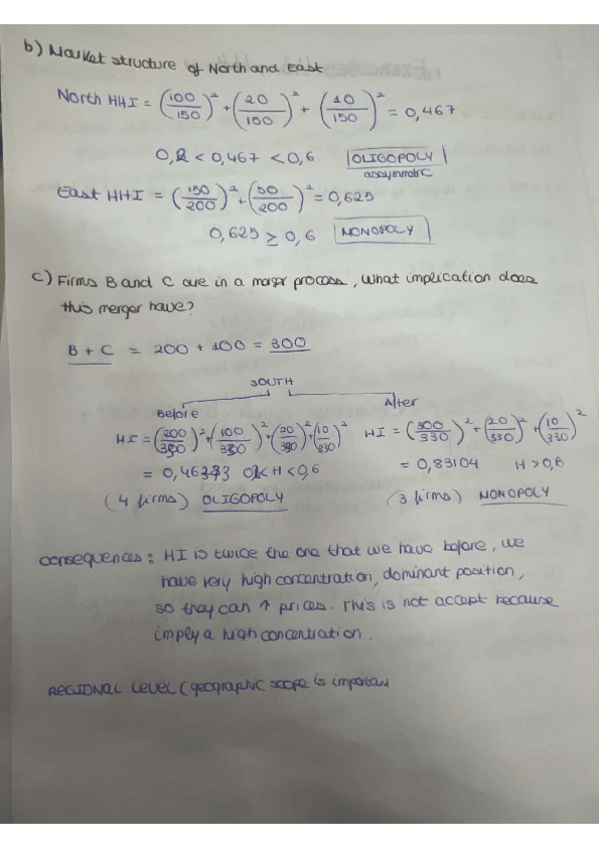 b) Market structure of North and East
North HHI = (100/150)² + (20/150)² + (10/150)² = 0,467
0,2 < 0,467 < 0,6 OLIGOPOLY
assymmetric
East HHI = (150/200)² + (50/200)² = 0,625
0,625 ≥ 0,6 MONOPOLY
c) Firms B and C are in a merger process, What implication does
this merger have?
B + C = 200 + 100 = 300
SOUTH
Before
HI = (200/330)² + (100/330)² + (20/330)² + (10/330)²
= 0,46373 0,2 < H < 0,6
(4 firms) OLIGOPOLY
After
HI = (300/330)² + (20/330)² + (10/330)²
= 0,83104 H > 0,6
(3 firms) MONOPOLY
consequences: HI is twice the one that we have before, we
have very high concentration, dominant position,
so they can ↑ prices. This is not accept because
imply a high concentration.
REGIONAL LEVEL (geographic scope is importan